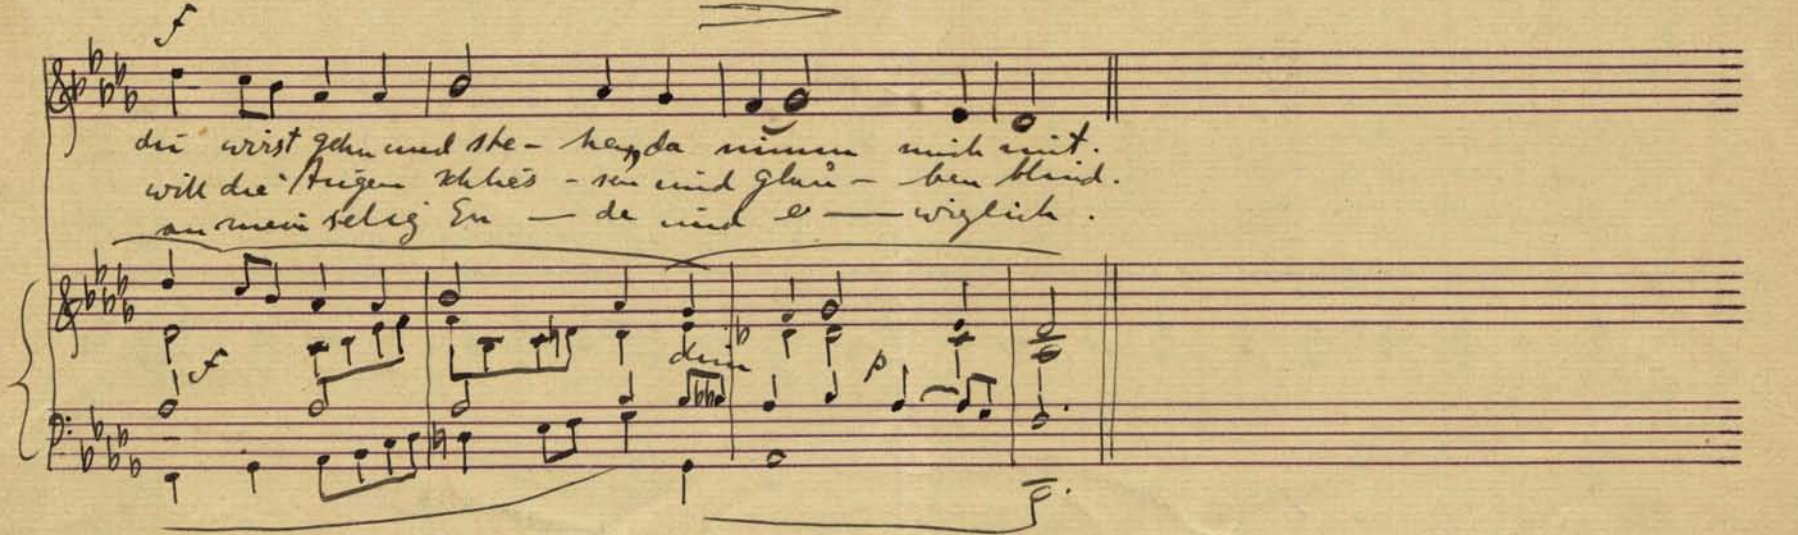 f
du wirst gehn und ste- hen, da nimm mich mit.
will die Augen schlies - sen und glau - ben blind.
an mein selig En — de und e — wiglich.
f
dim
p